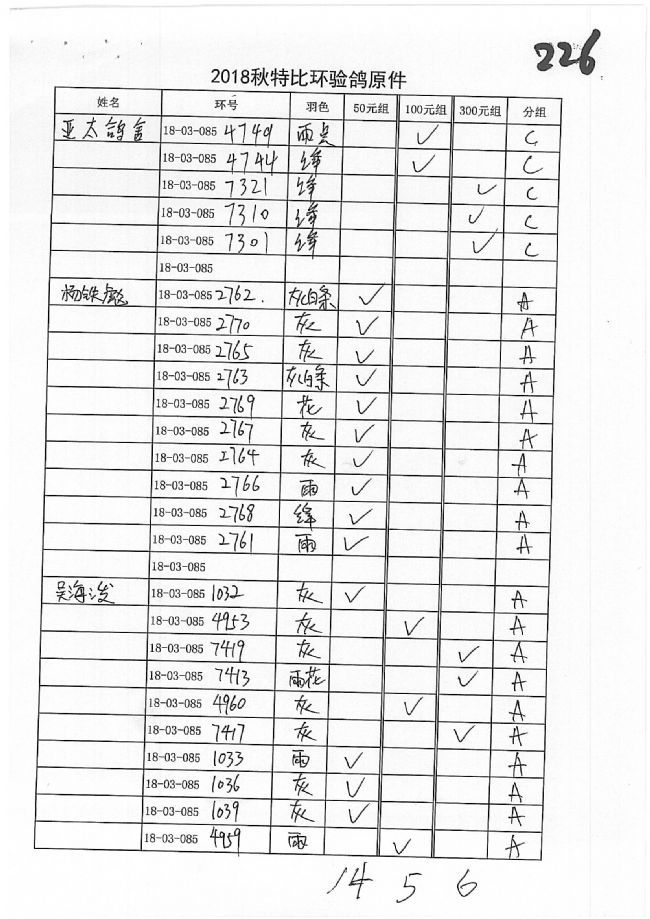 226
2018秋特比环验鸽原件
姓名 环号 羽色 50元组 100元组 300元组 分组
亚太鸽舍 18-03-085 4749 雨点 ✓ C
18-03-085 4744 绛 ✓ C
18-03-085 7321 绛 ✓ C
18-03-085 7310 绛 ✓ C
18-03-085 7301 绛 ✓ C
18-03-085
杨铁彪 18-03-085 2762. 灰白条 ✓ A
18-03-085 2770 灰 ✓ A
18-03-085 2765 灰 ✓ A
18-03-085 2763 灰白条 ✓ A
18-03-085 2769 花 ✓ A
18-03-085 2767 灰 ✓ A
18-03-085 2764 灰 ✓ A
18-03-085 2766 雨 ✓ A
18-03-085 2768 绛 ✓ A
18-03-085 2761 雨 ✓ A
18-03-085
吴海浚 18-03-085 1032 灰 ✓ A
18-03-085 4953 灰 ✓ A
18-03-085 7419 灰 ✓ A
18-03-085 7413 雨花 ✓ A
18-03-085 4960 灰 ✓ A
18-03-085 7417 灰 ✓ A
18-03-085 1033 雨 ✓ A
18-03-085 1036 灰 ✓ A
18-03-085 1039 灰 ✓ A
18-03-085 4959 雨 ✓ A
14 5 6